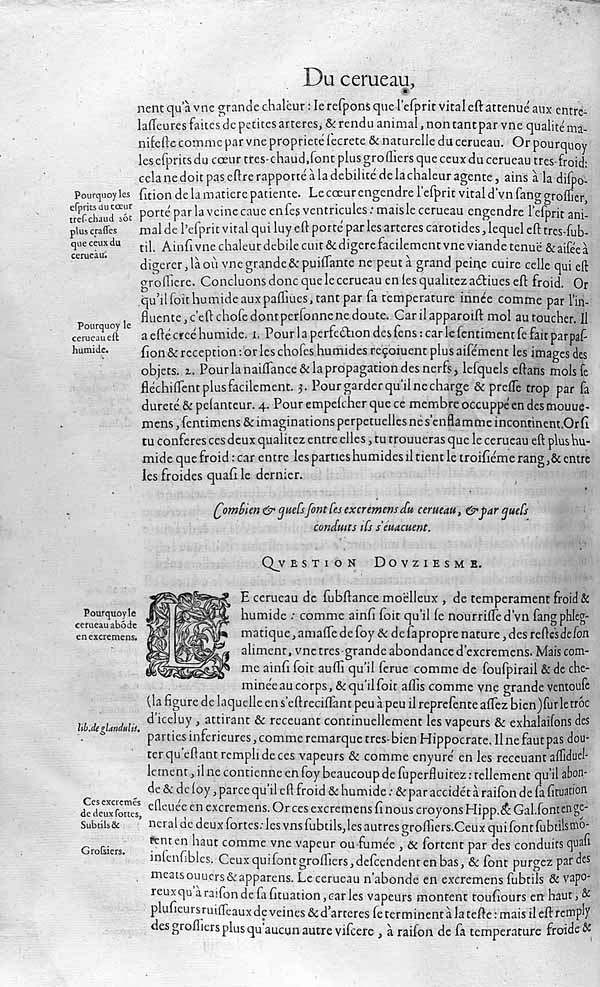 Du cerueau,
nent qu'à vne grande chaleur : Ie respons que l'esprit vital est attenué aux entre-
lasseures faites de petites arteres, & rendu animal, non tant par vne qualité ma-
nifeste comme par vne proprieté secrete & naturelle du cerueau. Or pourquoy
les esprits du cœur tres-chaud, sont plus grossiers que ceux du cerueau tres-froid:
cela ne doit pas estre rapporté à la debilité de la chaleur agente, ains à la dispo-
sition de la matiere patiente. Le cœur engendre l'esprit vital d'vn sang grossier,
porté par la veine caue en ses ventricules : mais le cerueau engendre l'esprit ani-
mal de l'esprit vital qui luy est porté par les arteres carotides, lequel est tres-sub-
til. Ainsi vne chaleur debile cuit & digere facilement vne viande tenuë & aisée à
digerer, là où vne grande & puissante ne peut à grand peine cuire celle qui est
grossiere. Concluons donc que le cerueau en ses qualitez actiues est froid. Or
qu'il soit humide aux passiues, tant par sa temperature innée comme par l'in-
fluente, c'est chose dont personne ne doute. Car il apparoist mol au toucher. Il
a esté creé humide. 1. Pour la perfection des sens : car le sentiment se fait par pas-
sion & reception : or les choses humides reçoiuent plus aisément les images des
objets. 2. Pour la naissance & la propagation des nerfs, lesquels estans mols se
fléchissent plus facilement. 3. Pour garder qu'il ne charge & presse trop par sa
dureté & pesanteur. 4. Pour empescher que ce membre occuppé en des mouue-
mens, sentimens & imaginations perpetuelles ne s'enflamme incontinent. Or si
tu conferes ces deux qualitez entre elles, tu trouueras que le cerueau est plus hu-
mide que froid : car entre les parties humides il tient le troisiéme rang, & entre
les froides quasi le dernier.
Pourquoy les
esprits du cœur
tres-chaud sõt
plus crasses
que ceux du
cerueau.
Pourquoy le
cerueau est
humide.
Combien & quels sont les excremens du cerueau, & par quels
conduits ils s'éuacuent.
QVESTION DOVZIESME.
LE cerueau de substance moëlleux, de temperament froid &
humide : comme ainsi soit qu'il se nourrisse d'vn sang phleg-
matique, amasse de soy & de sa propre nature, des restes de son
aliment, vne tres-grande abondance d'excremens. Mais com-
me ainsi soit aussi qu'il serue comme de souspirail & de che-
minée au corps, & qu'il soit assis comme vne grande ventouse
(la figure de laquelle en s'estrecissant peu à peu il represente assez bien) sur le trõc
d'iceluy, attirant & receuant continuellement les vapeurs & exhalaisons des
parties inferieures, comme remarque tres-bien Hippocrate. Il ne faut pas dou-
ter qu'estant rempli de ces vapeurs & comme enyuré en les receuant assiduel-
lement, il ne contienne en soy beaucoup de superfluitez : tellement qu'il abon-
de & de soy, parce qu'il est froid & humide : & par accidẽt à raison de sa situation
esleuée en excremens. Or ces excremens si nous croyons Hipp. & Gal. sont en ge-
neral de deux sortes : les vns subtils, les autres grossiers. Ceux qui sont subtils mõ-
tent en haut comme vne vapeur ou fumée, & sortent par des conduits quasi
insensibles. Ceux qui sont grossiers, descendent en bas, & sont purgez par des
meats ouuers & apparens. Le cerueau n'abonde en excremens subtils & vapo-
reux qu'à raison de sa situation, car les vapeurs montent tousiours en haut, &
plusieurs ruisseaux de veines & d'arteres se terminent à la teste : mais il est remply
des grossiers plus qu'aucun autre viscere, à raison de sa temperature froide &
Pourquoy le
cerueau abõde
en excremens.
lib. de glandulis.
Ces excremẽs
de deux sortes,
Subtils &
Grossiers.